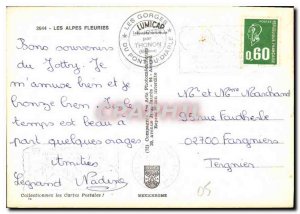 2644 - LES ALPES FLEURIES
LES GORGES
DU PONT DU DIABLE
LUMICAP
par
THONON
REPUBLIQUE FRANÇAISE
0,60
Bons souvenirs
du Jotty. Je
m'amuse bien et je
bronze bien. Le
temps est beau à
part quelques orages
Amitiés
Legrand Nadine
Mr et Mme Marchand
02700 Fargniers
Tergnier
Collectionnez les Cartes Postales !
MEXICHROME
05